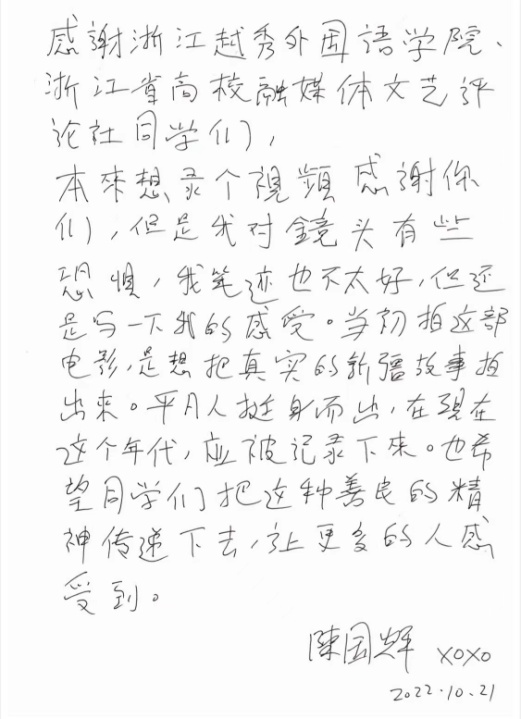 感謝浙江越秀外国語学院、
浙江省高校融媒体文艺评
论社同学们，
本來想录个視頻感谢你
们，但是我对鏡头有些
恐惧，我笔迹也不太好，但还
是写一下我的感受。当初拍这部
电影，是想把真实的新疆故事拍
出來。平凡人挺身而出，在現在
这个年代，应被记录下來。也希
望同学们把这种善良的精
神传递下去，让更多的人感
受到。
陳国辉 xoxo
2022.10.21